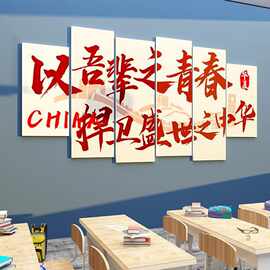 以吾辈之青春
CHINA
捍卫盛世之中华